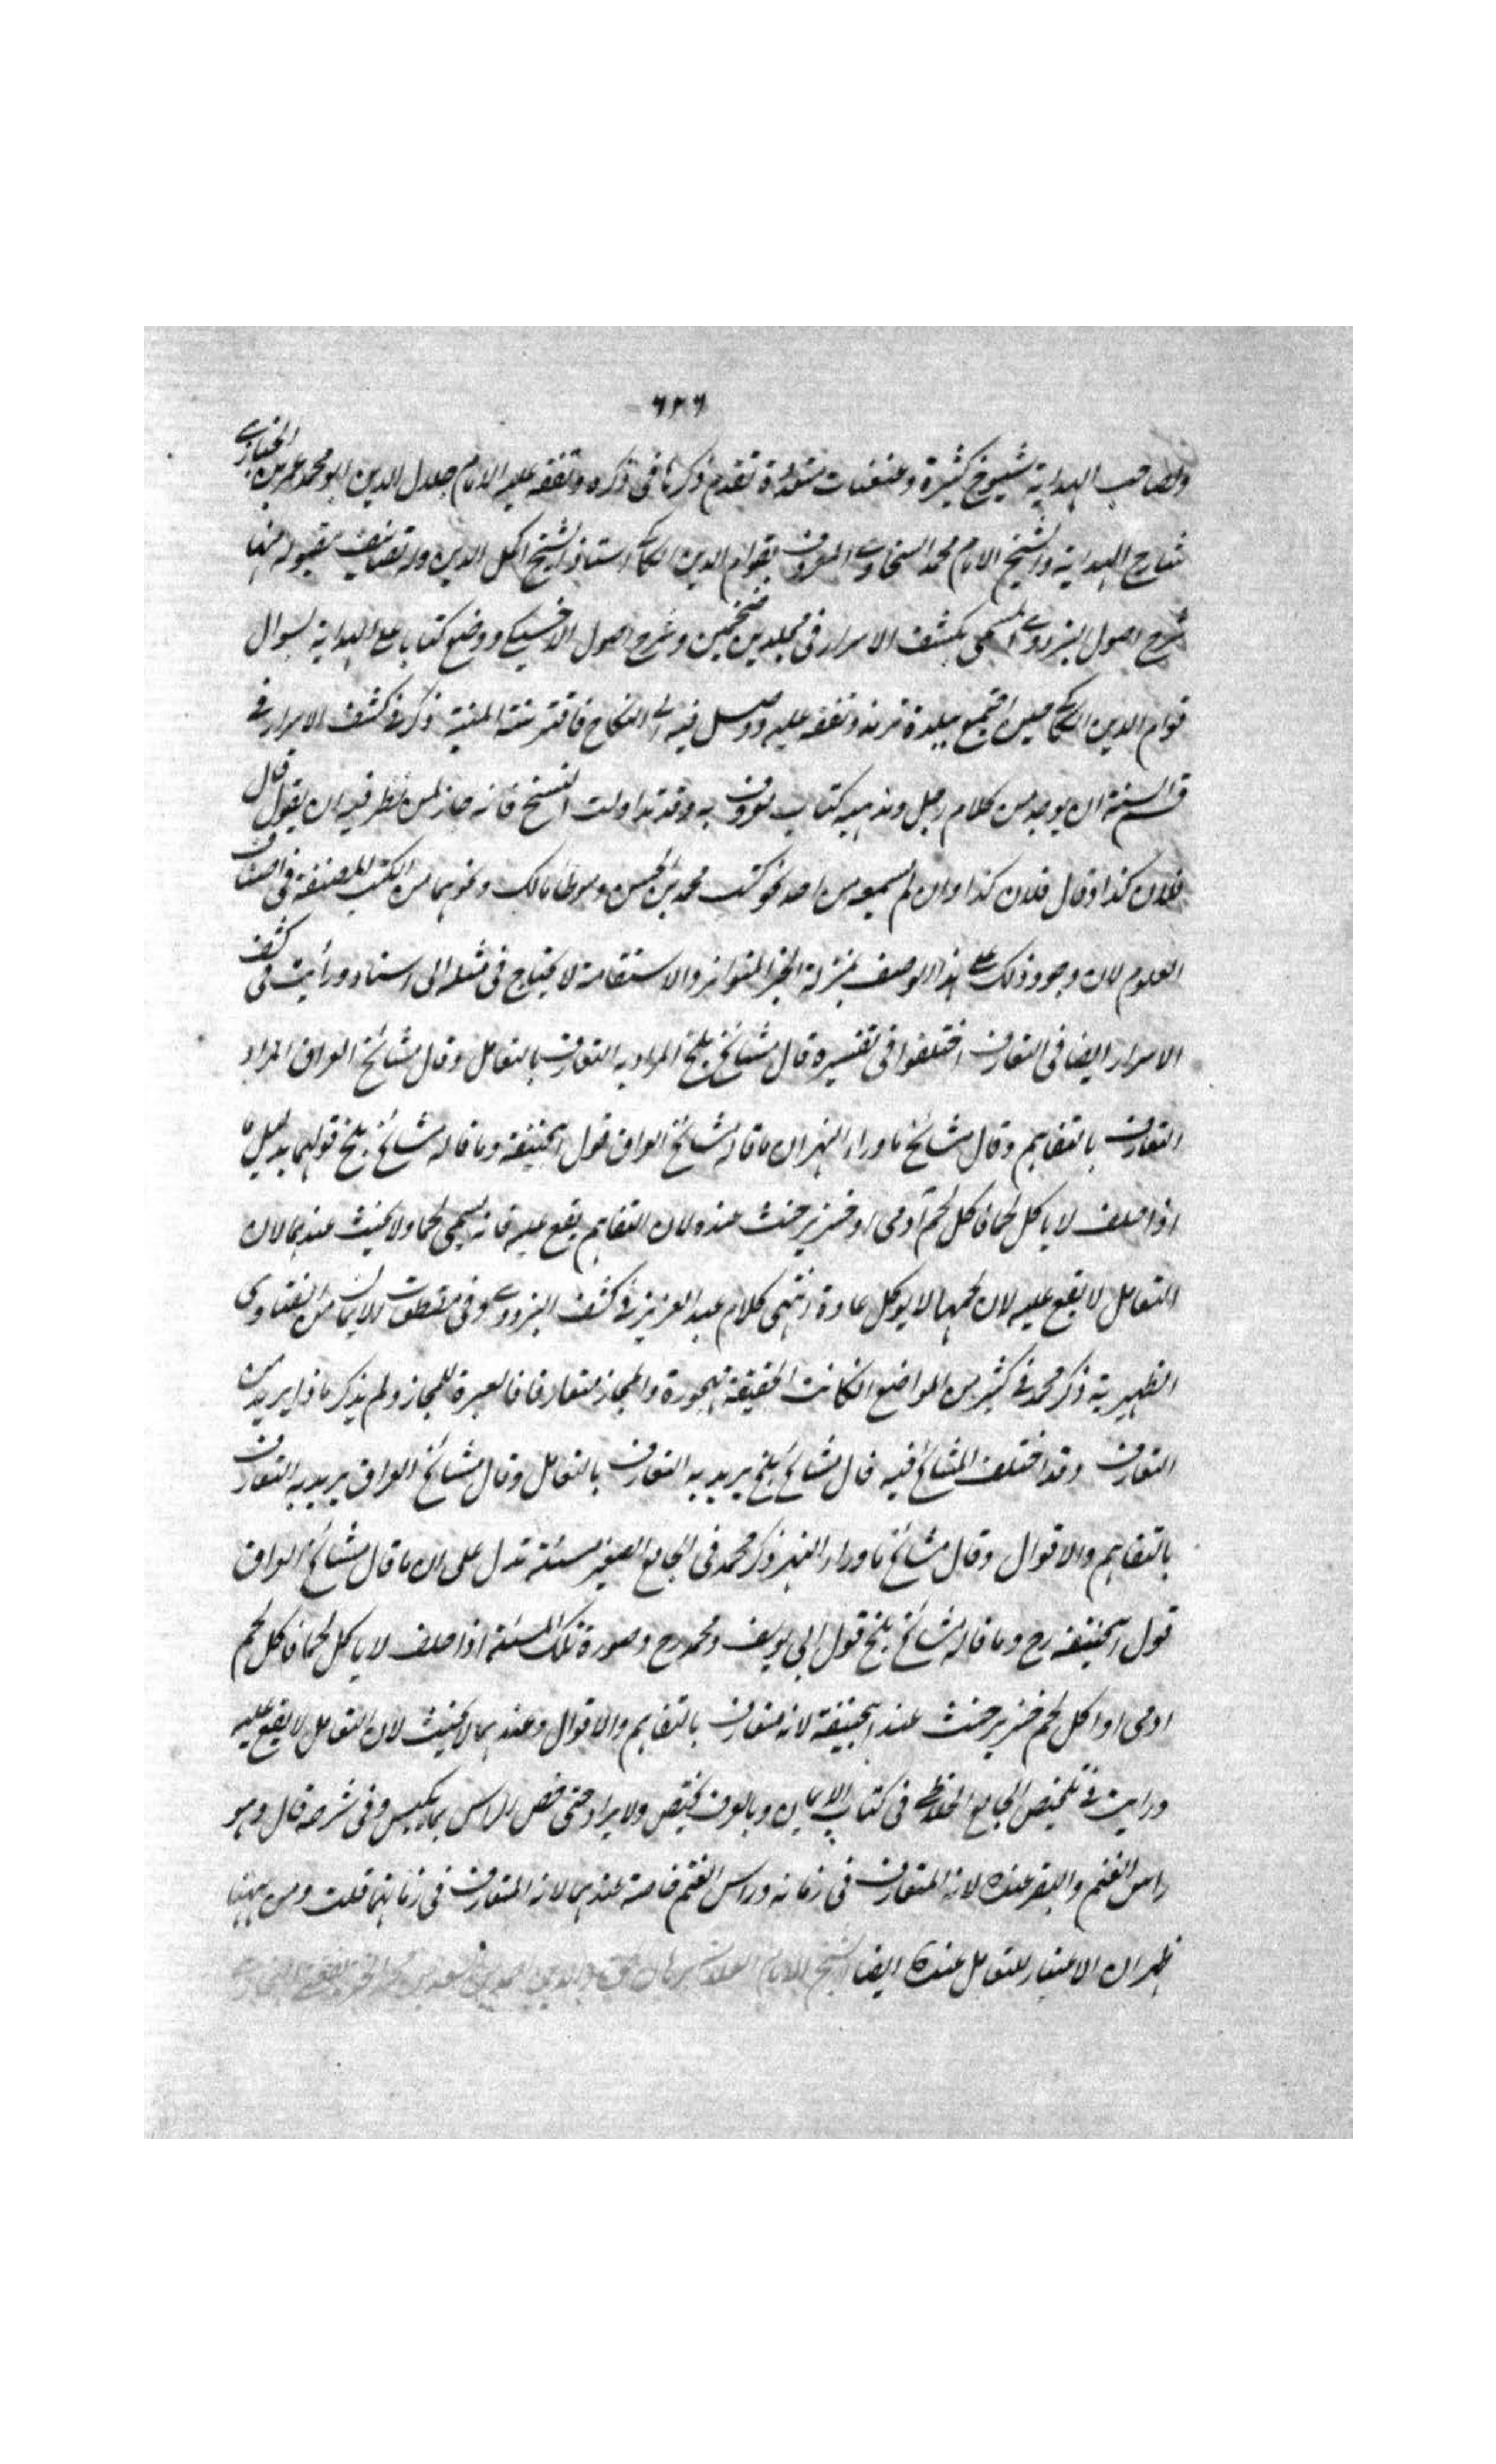 ٦٢٦
ولصاحب الهداية شيوخ كثيرة ومصنفات متعددة تقدم ذكرها فى ذكره وتفقه عليه الامام جلال الدين ابو محمد عمر بن الخبازى
شارح الهداية والشيخ الامام محمد البخارى المعروف بقوام الدين الكاكى استاذ الشيخ اكمل الدين وله تصانيف مقبولة منها
شرح اصول البزدوى المسمى بكشف الاسرار فى مجلدين ضخمين وشرح اصول الاخسيكى ووضع كتابا على الهداية بسوال
قوام الدين الكاكى حين اجتمع ببلدة ترمذ وتفقه عليه ووصل فيه الى النكاح فاخترمته المنية ذكر فى كشف الاسرار فى
قسم السنة ان يوجد من كلام رجل ومذهبه كتاب معروف به وقد تداولت النسخ فانه جاز لمن نظر فيه ان يقول قال
فلان كذا وقال فلان كذا وان لم يسمعه من احد نحو كتب محمد بن الحسن وموطا مالك ونحوهما من الكتب المصنفة فى اصناف
العلوم لان وجود ذلك على هذا الوصف بمنزلة الخبر المتواتر والاستقامة لا يحتاج فى مثله الى اسناد ورأيت فى كشف
الاسرار ايضا فى التعارف اختلفوا فى تفسيره قال مشائخ بلخ المراد به التعارف بالتعامل وقال مشائخ العراق المراد
التعارف بالتفاهم وقال مشائخ ماوراء النهر ان ما قاله مشائخ العراق قول ابيحنيفة وما قاله مشائخ بلخ قولهما بدليل
اذا حلف لا ياكل لحما فاكل لحم آدمى او خنزير حنث عنده لان التفاهم يقع عليه فانه يسمى لحما ولا يحنث عندهما لان
التعامل لا يقع عليه لان لحمهما لا يوكل عادة انتهى كلام عبد العزيز فى كشف البزدوى وفى مقطعات الايمان من الفتاوى
الظهيرية ذكر محمد فى كثير من المواضع اذا كانت الحقيقة مهجورة والمجاز متعارفا فالعبرة للمجاز ولم يذكر ماذا يريد من
التعارف وقد اختلف المشائخ فيه قال مشائخ بلخ يريد به التعارف بالتعامل وقال مشائخ العراق يريد به التعارف
بالتفاهم والاقوال وقال مشائخ ماوراء النهر ذكر محمد فى الجامع الصغير مسئلة تدل على ان ما قال مشائخ العراق
قول ابيحنيفة رح وما قاله مشائخ بلخ قول ابى يوسف ومحمد رح وصورة تلك المسئلة اذا حلف لا ياكل لحما فاكل لحم
ادمى او اكل لحم خنزير حنث عند ابيحنيفة لانه متعارف بالتفاهم والاقوال وعندهما لا يحنث لان التعامل لا يقع عليه
ورايت فى تلخيص الجامع الخلاطى فى كتاب الايمان وبالعرف يختص ولا يزاد حتى خص الراس بما يكبس وفى شرحه قال وهو
راس الغنم والبقر عنده لانه المتعارف فى زمانه وراس الغنم خاصة عندهما لانه المتعارف فى زمانهما قلت ومن ههنا
ظهر ان الاعتبار للتعامل عنده ايضا الشيخ الامام